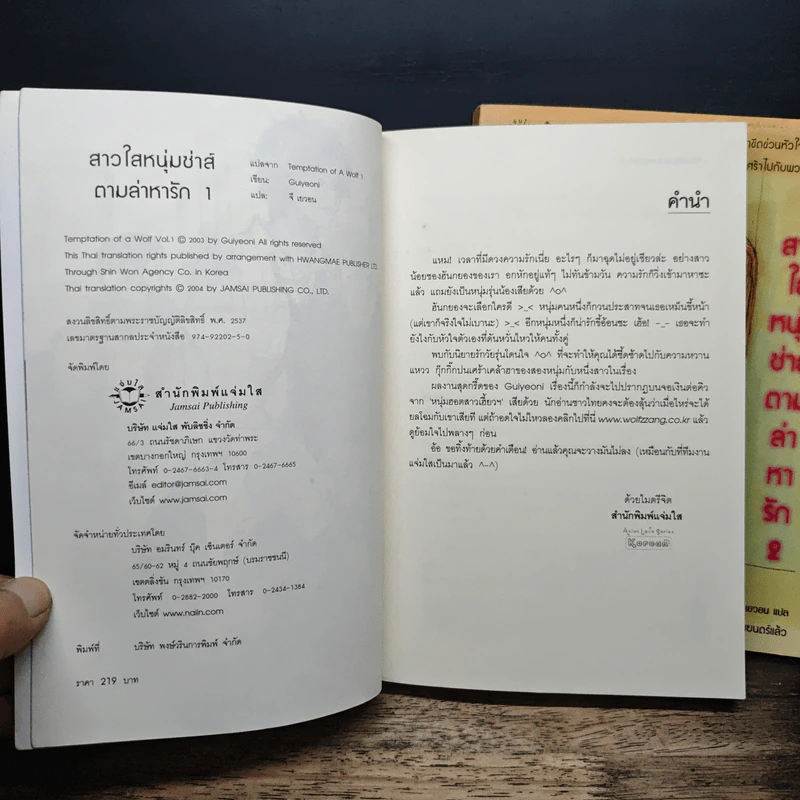 สาวใสหนุ่มซ่าส์
ตามล่าหารัก 1
แปลจาก Temptation of A Wolf 1
เขียน: Guiyeoni
แปล: จี เยวอน
Temptation of a Wolf Vol.1 © 2003 by Guiyeoni All rights reserved
This Thai translation rights published by arrangement with HWANGMAE PUBLISHER LTD.
Through Shin Won Agency Co. in Korea
Thai translation copyrights © 2004 by JAMSAI PUBLISHING CO., LTD.
สงวนลิขสิทธิ์ตามพระราชบัญญัติลิขสิทธิ์ พ.ศ. 2537
เลขมาตรฐานสากลประจำหนังสือ 974-92202-5-0
จัดพิมพ์โดย
แจ่มใส
JAMSAI
สำนักพิมพ์แจ่มใส
Jamsai Publishing
บริษัท แจ่มใส พับลิชชิ่ง จำกัด
66/3 ถนนรัชดาภิเษก แขวงวัดท่าพระ
เขตบางกอกใหญ่ กรุงเทพฯ 10600
โทรศัพท์ 0-2467-6663-4 โทรสาร 0-2467-6665
อีเมล์ editor@jamsai.com
เว็บไซต์ www.jamsai.com
จัดจำหน่ายทั่วประเทศโดย
บริษัท อมรินทร์ บุ๊ค เซ็นเตอร์ จำกัด
65/60-62 หมู่ 4 ถนนชัยพฤกษ์ (บรมราชชนนี)
เขตตลิ่งชัน กรุงเทพฯ 10170
โทรศัพท์ 0-2882-2000 โทรสาร 0-2434-1384
เว็บไซต์ www.naiin.com
พิมพ์ที่ บริษัท พงษ์วรินการพิมพ์ จำกัด
ราคา 219 บาท
คำนำ
แหม! เวลาที่มีดวงความรักเนี่ย อะไรๆ ก็มาฉุดไม่อยู่เชียวล่ะ อย่างสาว
น้อยของฮันกยองของเรา อกหักอยู่แท้ๆ ไม่ทันข้ามวัน ความรักก็วิ่งเข้ามาหาซะ
แล้ว แถมยังเป็นหนุ่มรุ่นน้องเสียด้วย ^o^
ฮันกยองจะเลือกใครดี >_< หนุ่มคนหนึ่งก็กวนประสาทจนเธอเหม็นขี้หน้า
(แต่เขาก็จริงใจไม่เบานะ) >_< อีกหนุ่มหนึ่งก็น่ารักขี้อ้อนซะ เฮ้อ! -_- เธอจะทำ
ยังไงกับหัวใจตัวเองที่ดันหวั่นไหวให้คนทั้งคู่
พบกับนิยายรักวัยรุ่นโดนใจ ^o^ ที่จะทำให้คุณได้ซี้ดซ้าดไปกับความหวาน
แหวว กุ๊กกิ๊กปนเศร้าเคล้าฮาของสองหนุ่มกับหนึ่งสาวในเรื่อง
ผลงานสุดกรี๊ดของ Guiyeoni เรื่องนี้ก็กำลังจะไปปรากฏบนจอเงินต่อคิว
จาก 'หนุ่มฮอตสาวเฮี้ยวฯ' เสียด้วย นักอ่านชาวไทยคงจะต้องลุ้นว่าเมื่อไหร่จะได้
ยลโฉมกับเขาเสียที แต่ถ้าอดใจไม่ไหวลองคลิกไปที่นี่ www.wolfzzang.co.kr แล้ว
ดูย้อมใจไปพลางๆ ก่อน
อ้อ ขอทิ้งท้ายด้วยคำเตือน! อ่านแล้วคุณจะวางมันไม่ลง (เหมือนกับที่ทีมงาน
แจ่มใสเป็นมาแล้ว ^-^)
ด้วยไมตรีจิต
สำนักพิมพ์แจ่มใส
Asian Love Series
Korean
สา
ใส
หนุ่ม
ซ่าส์
ตาม
ล่า
หา
รัก
2
เยวอน แปล